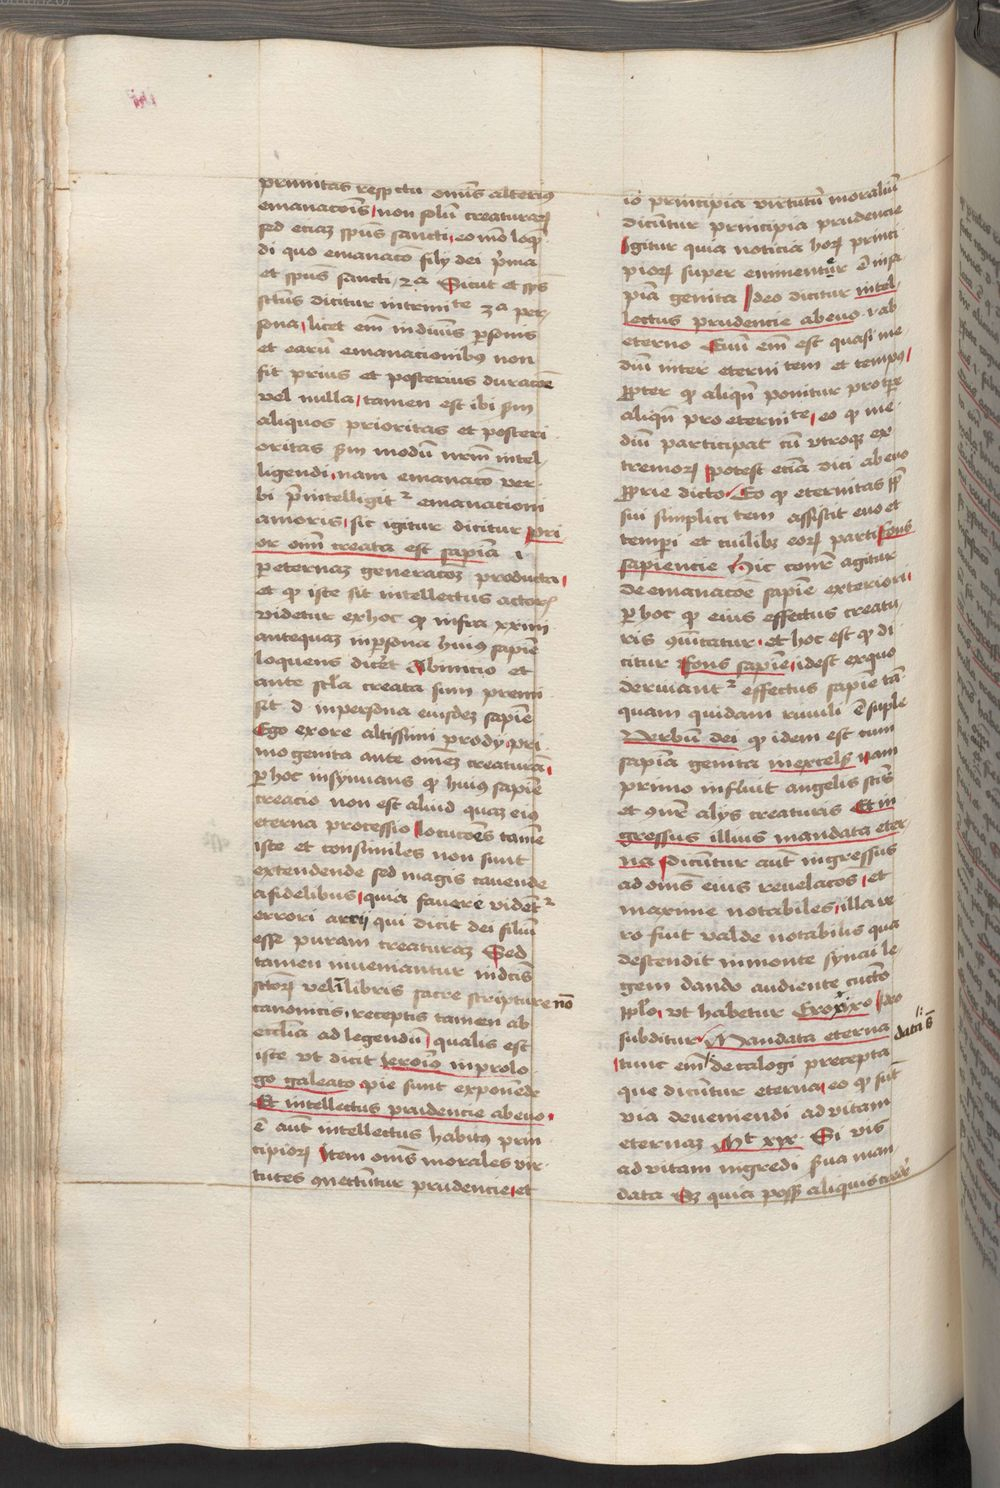 primitas respectu omīs alterius
emanacoīs non solū creaturarꝫ
sed eciaꝫ sp̄us sancti eo mō loqn̄
di quo emanacō filij dei p̄ma
et sp̄us sancti 2a Sicut et sp̄s
sctūs dicitur in trinite 3a per
sona licet em̄ in diuīs p̄sonis
et earū emanacionibꝰ non
sit prius et posterius duracōe
vel nulla tamen est ibi sm̄
aliquos prioritas et posteri
oritas sm̄ modū nrm̄ intel
ligendi nam emanacō ver
bi p̄intelligit² emanacioni
amoris sic igitur dicitur Pri
or om̄ creata est sapīa i
p eternaꝫ generacōꝫ producta
et qꝫ iste sit intellectus actorꝫ
videtur ex hoc qꝫ infra xxiiii
antequaꝫ in p̄sona huiꝰ sapīe
loquens dicet Ab inicio et
ante scl̄a creata sum premi
sit d in persona eiusdeꝫ sapīe
Ego ex ore altissimi prodij pri
mogenita ante om̄eꝫ creaturā
p hoc insynuans qꝫ huiꝰ sapīe
creacio non est aliud quaꝫ eiꝰ
eterna processio locucōes tamē
iste et consimiles non sunt
extendende sed magis cauende
a fidelibus quia fauere videt²
errori arrij qui dicit dei filiū
esse puram creaturaꝫ Sed
tamen inueniantur in dcīs
sctōrꝫ vel ī libris sacre scripture nō
canonicis receptis tamen ab
eccl̄ia ad legendū qualis est
iste vt dicit Ieroīo in prolo
go galeato pie sunt exponēde
Et intellectus prudencie ab euo
ē aūt intellectus habitꝰ prin
cipiorꝫ Item om̄s morales vir
tutes ꝯnectūtur prudencie et
iō principia virtutū moraliū
dicūtur principia prudencie
Igitur quia noticia horꝫ princi
piorꝫ super eminentur ē in sa
pīa genita Ideo dicitur intel
lectus prudencie ab euo i ab
eterno Euū em̄ est quasi me
diū inter eternitem et tempꝰ
propter qꝫ aliqn̄ ponitur pro tp̄e
aliqn̄ pro eternite eo qꝫ me
diū participat cū vtroqꝫ ex
tremorꝫ potest eciā dici ab euo
proprie dicto Eo qꝫ eternitas
sui simplicitem assistit euo et
temp̄i et cuilibꝫ eorꝫ parti Fons
sapiencie Hic conīr agitur
de emanacōe sapīe exteriori
p hoc qꝫ eius effectus creatu
ris ꝯicatur et hoc est qꝫ di
citur Fons sapīe idest ex quo
deriuant² effectus sapīe tā
quam quidam riuuli ē suple
Verbū dei qꝫ idem est cum
sapīa genita in excelsꝭ nam
primo influit angelis sctīs
et ꝯnr̄ alijs creaturis Et in
gressus illius mandata eter
na Dicūtur aūt ingressus
ad om̄s eius reuelacōs et
maxime notabiles illa ve
ro fuit valde notabilis qua
descendit in monte synai le
gem dando audiente cūcto
pplo vt habetur Exo xixo Ideo
subditur Mandata eterna
tunc em̄ decalogi precepta
data s̄
que dicūtur eterna eo qꝫ sūt
via deueniendi ad vitam
eternaꝫ Mt xix Si vis
ad vitam ingredi s̄ua man
data Sꝫ quia posset aliquis crede